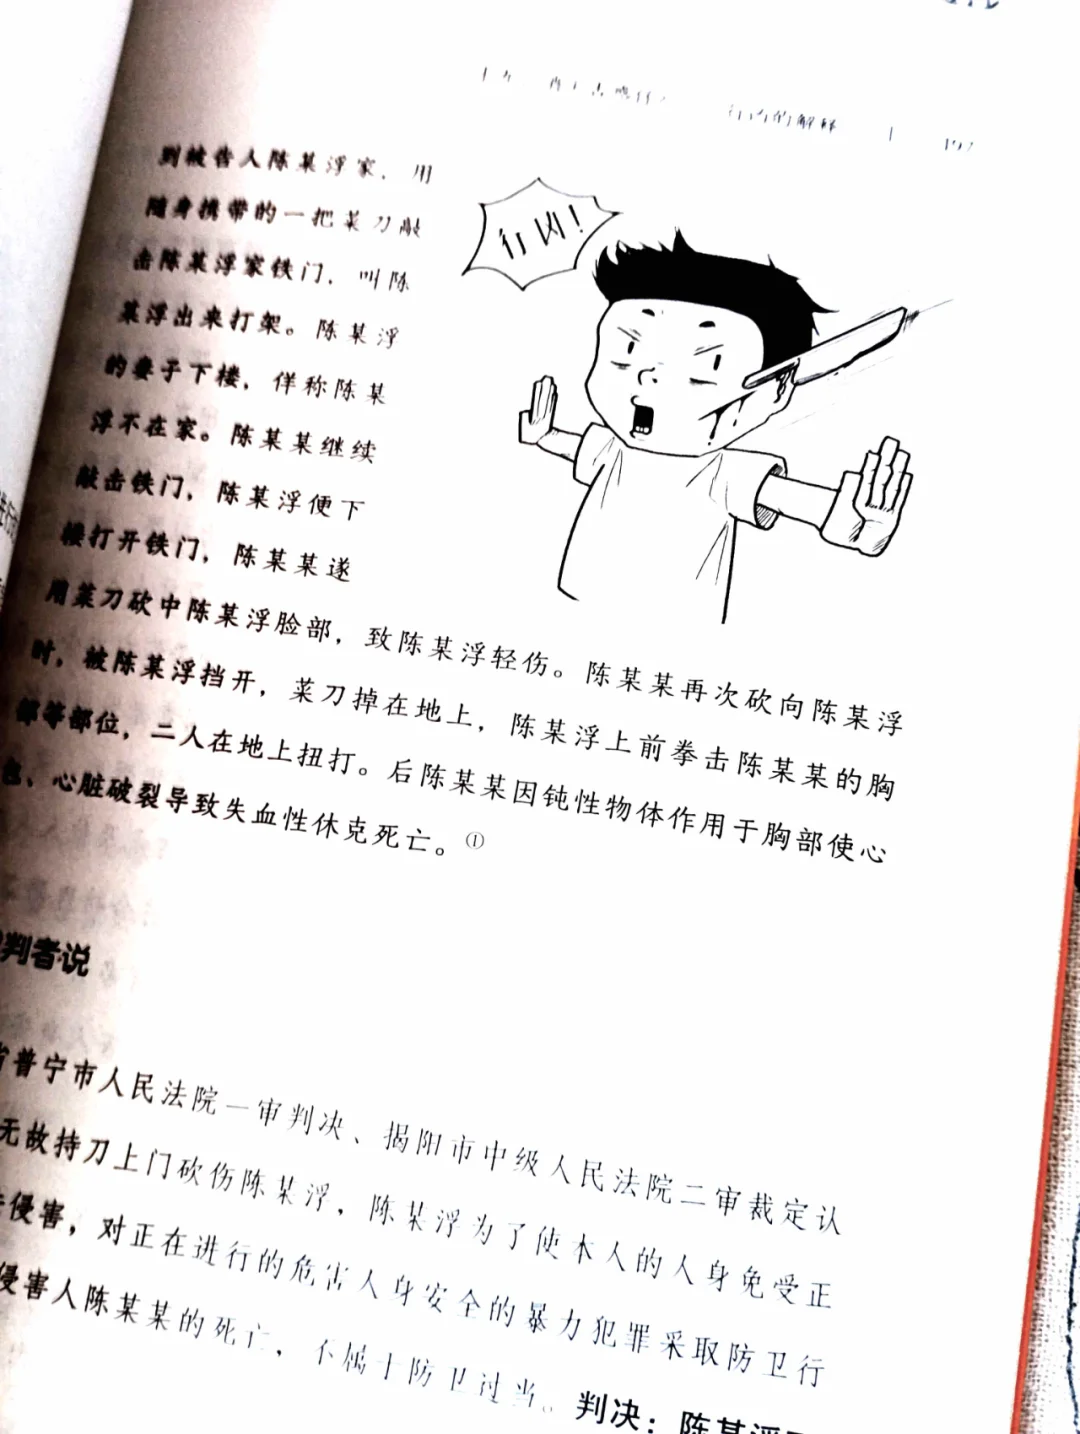 行凶的解释 | 197
到被告人陈某浮家，用
随身携带的一把菜刀敲
击陈某浮家铁门，叫陈
某浮出来打架。陈某浮
的妻子下楼，佯称陈某
浮不在家。陈某某继续
敲击铁门，陈某浮便下
楼打开铁门，陈某某遂
行凶！
用菜刀砍中陈某浮脸部，致陈某浮轻伤。陈某某再次砍向陈某浮
时，被陈某浮挡开，菜刀掉在地上，陈某浮上前拳击陈某某的胸
部等部位，二人在地上扭打。后陈某某因钝性物体作用于胸部使心
包、心脏破裂导致失血性休克死亡。①
判者说
省普宁市人民法院一审判决、揭阳市中级人民法院二审裁定认
无故持刀上门砍伤陈某浮，陈某浮为了使本人的人身免受正
侵害，对正在进行的危害人身安全的暴力犯罪采取防卫行
侵害人陈某某的死亡，不属于防卫过当。判决：陈某浮